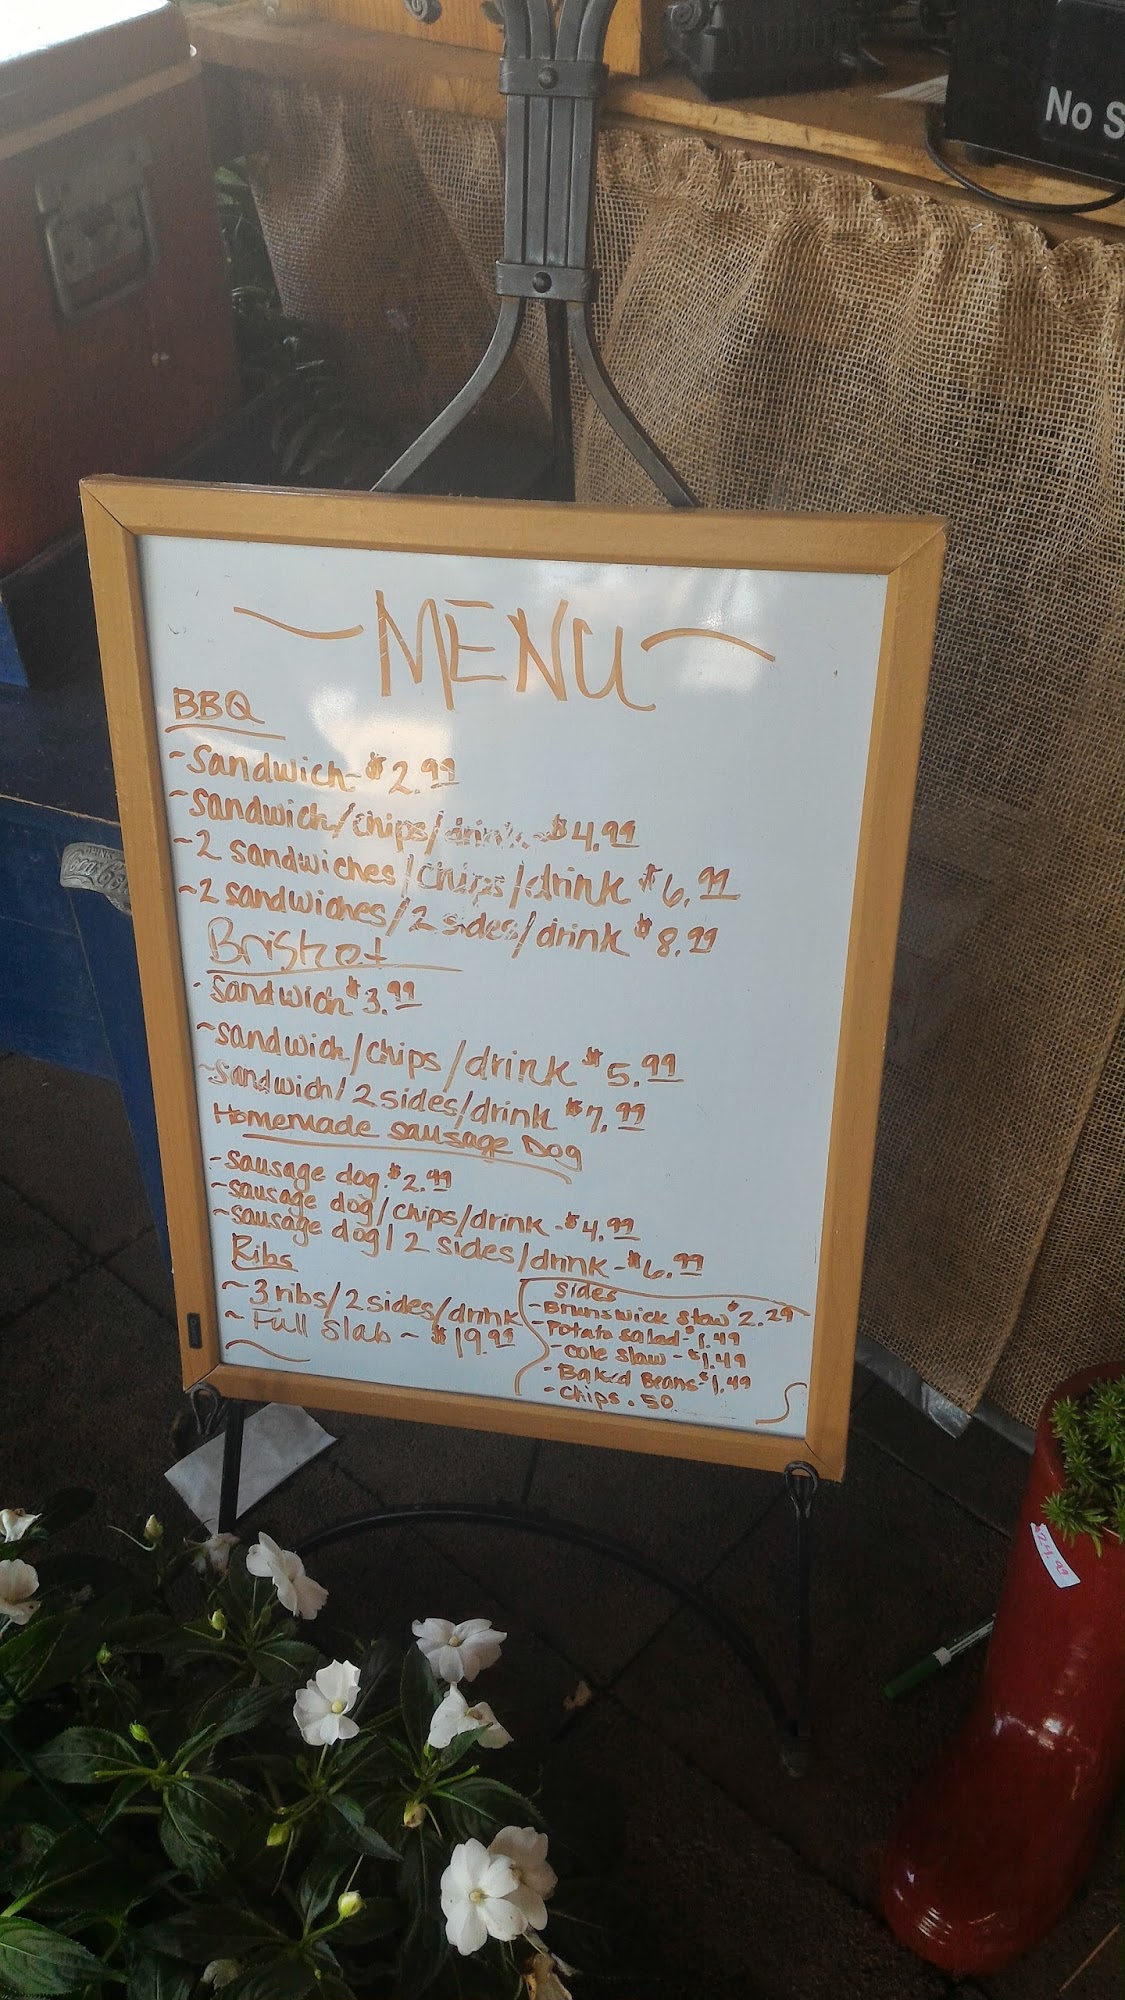 No S
DRINK
Coca-Co
~MENU~
BBQ
~Sandwich- $2.99
~sandwich/chips/drink-$4.99
~2 sandwiches/chips/drink $6.99
~2 sandwiches/2 sides/drink $8.99
Brisket
·Sandwich $3.99
~sandwich/chips/drink $5.99
~sandwich/2 sides/drink $7.99
Homemade sausage Dog
-sausage dog $2.99
~sausage dog/chips/drink-$4.99
~sausage dog/2 sides/drink-$6.99
Ribs
~3 ribs/2 sides/drink
~Full Slab~ $19.99
Sides
-Brunswick stew $2.29
-Potato salad-$1.49
-Cole slaw-$1.49
-Baked Beans-$1.49
-Chips .50
$24.99